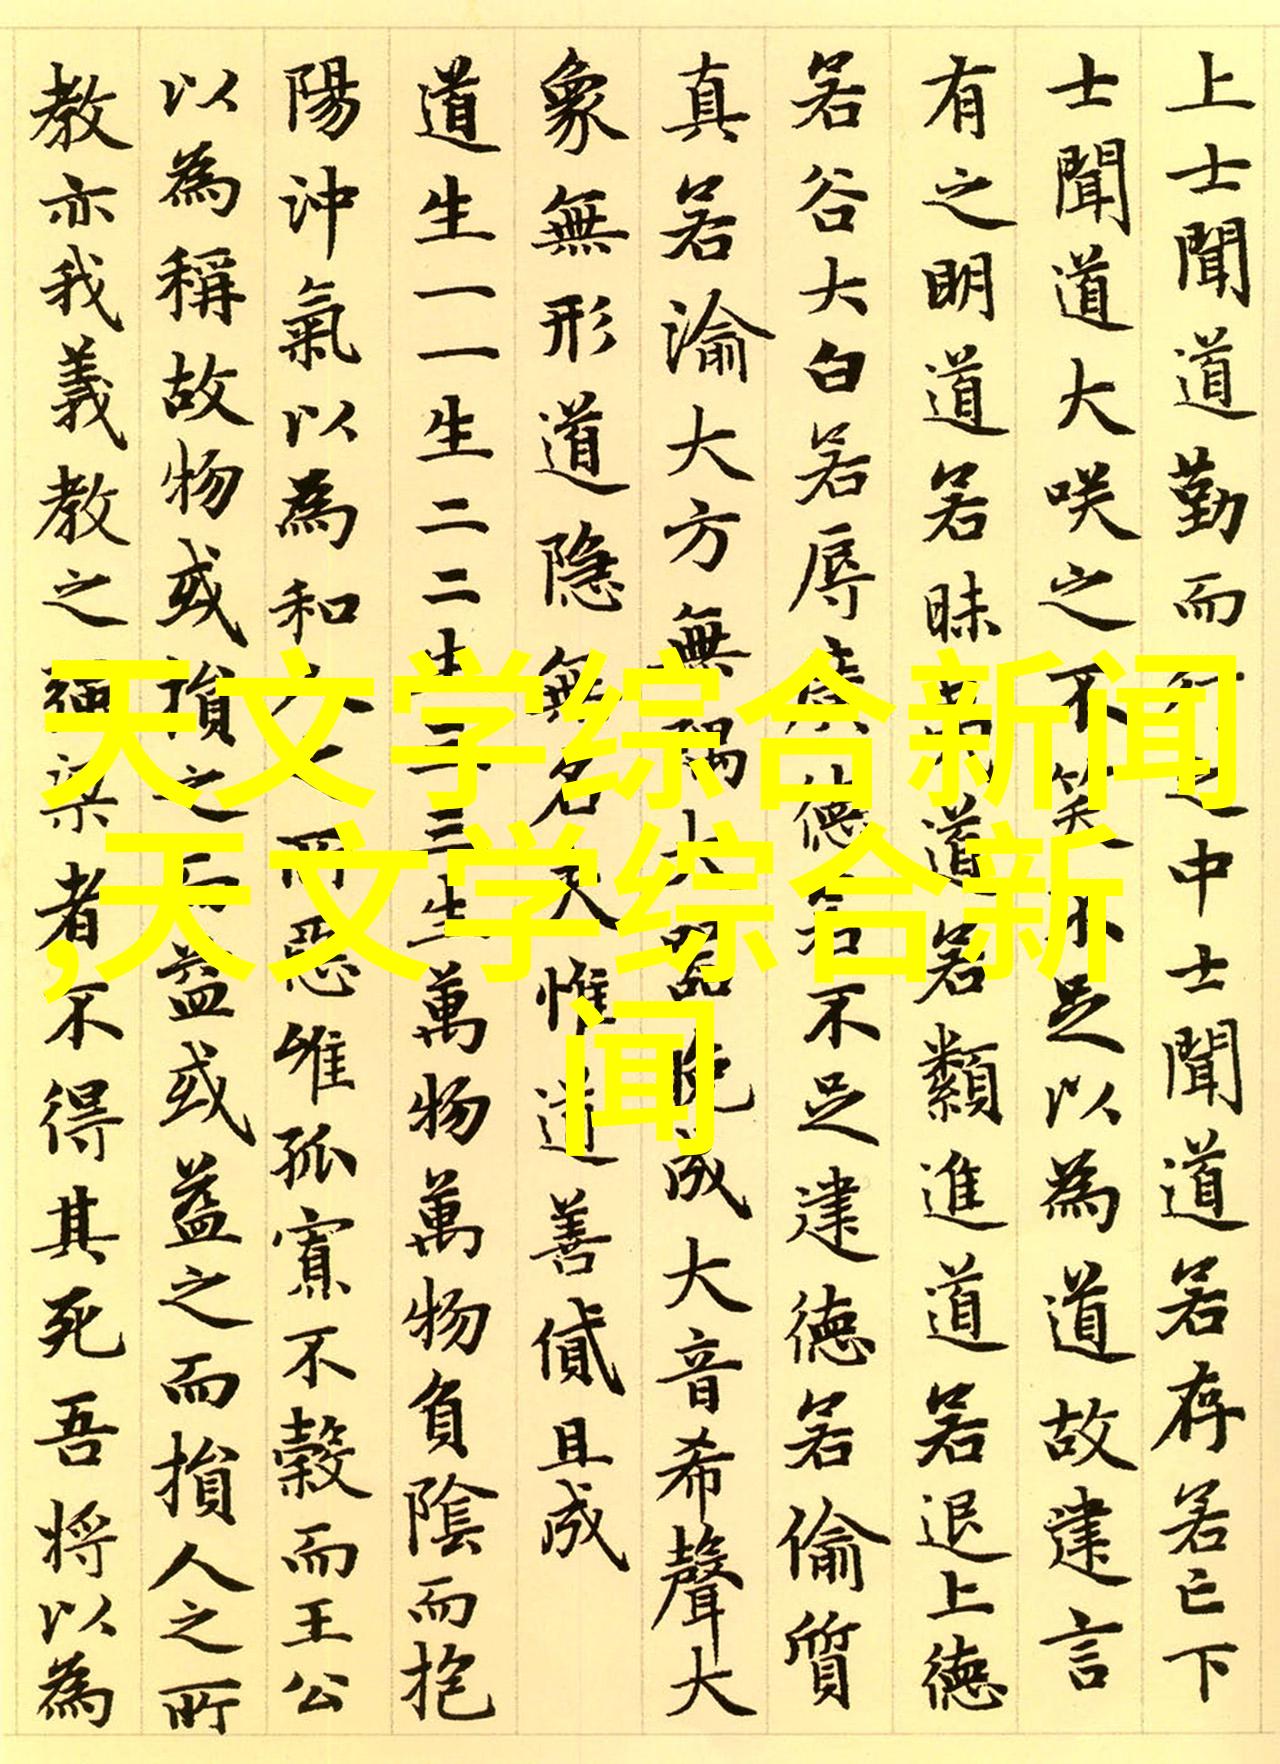 上士聞道勤而行之中士聞道若存若亡下
士聞道大咲之不笑不足以為道故建言
有之明道若昧夷道若類進道若退上德
若谷大白若辱廣德若不足建德若偷質
真若渝大方無隅大器晚成大音希聲大
象無形道隐無名天惟道善貸且成
道生一一生二二生三三生萬物萬物負陰而抱
陽沖氣以為和人之所惡唯孤寡不穀而王公
以為稱故物或損之而益或益之而損人之所
教亦我義教之強梁者不得其死吾将以為
天文学综合新闻
,天文学综合新
闻